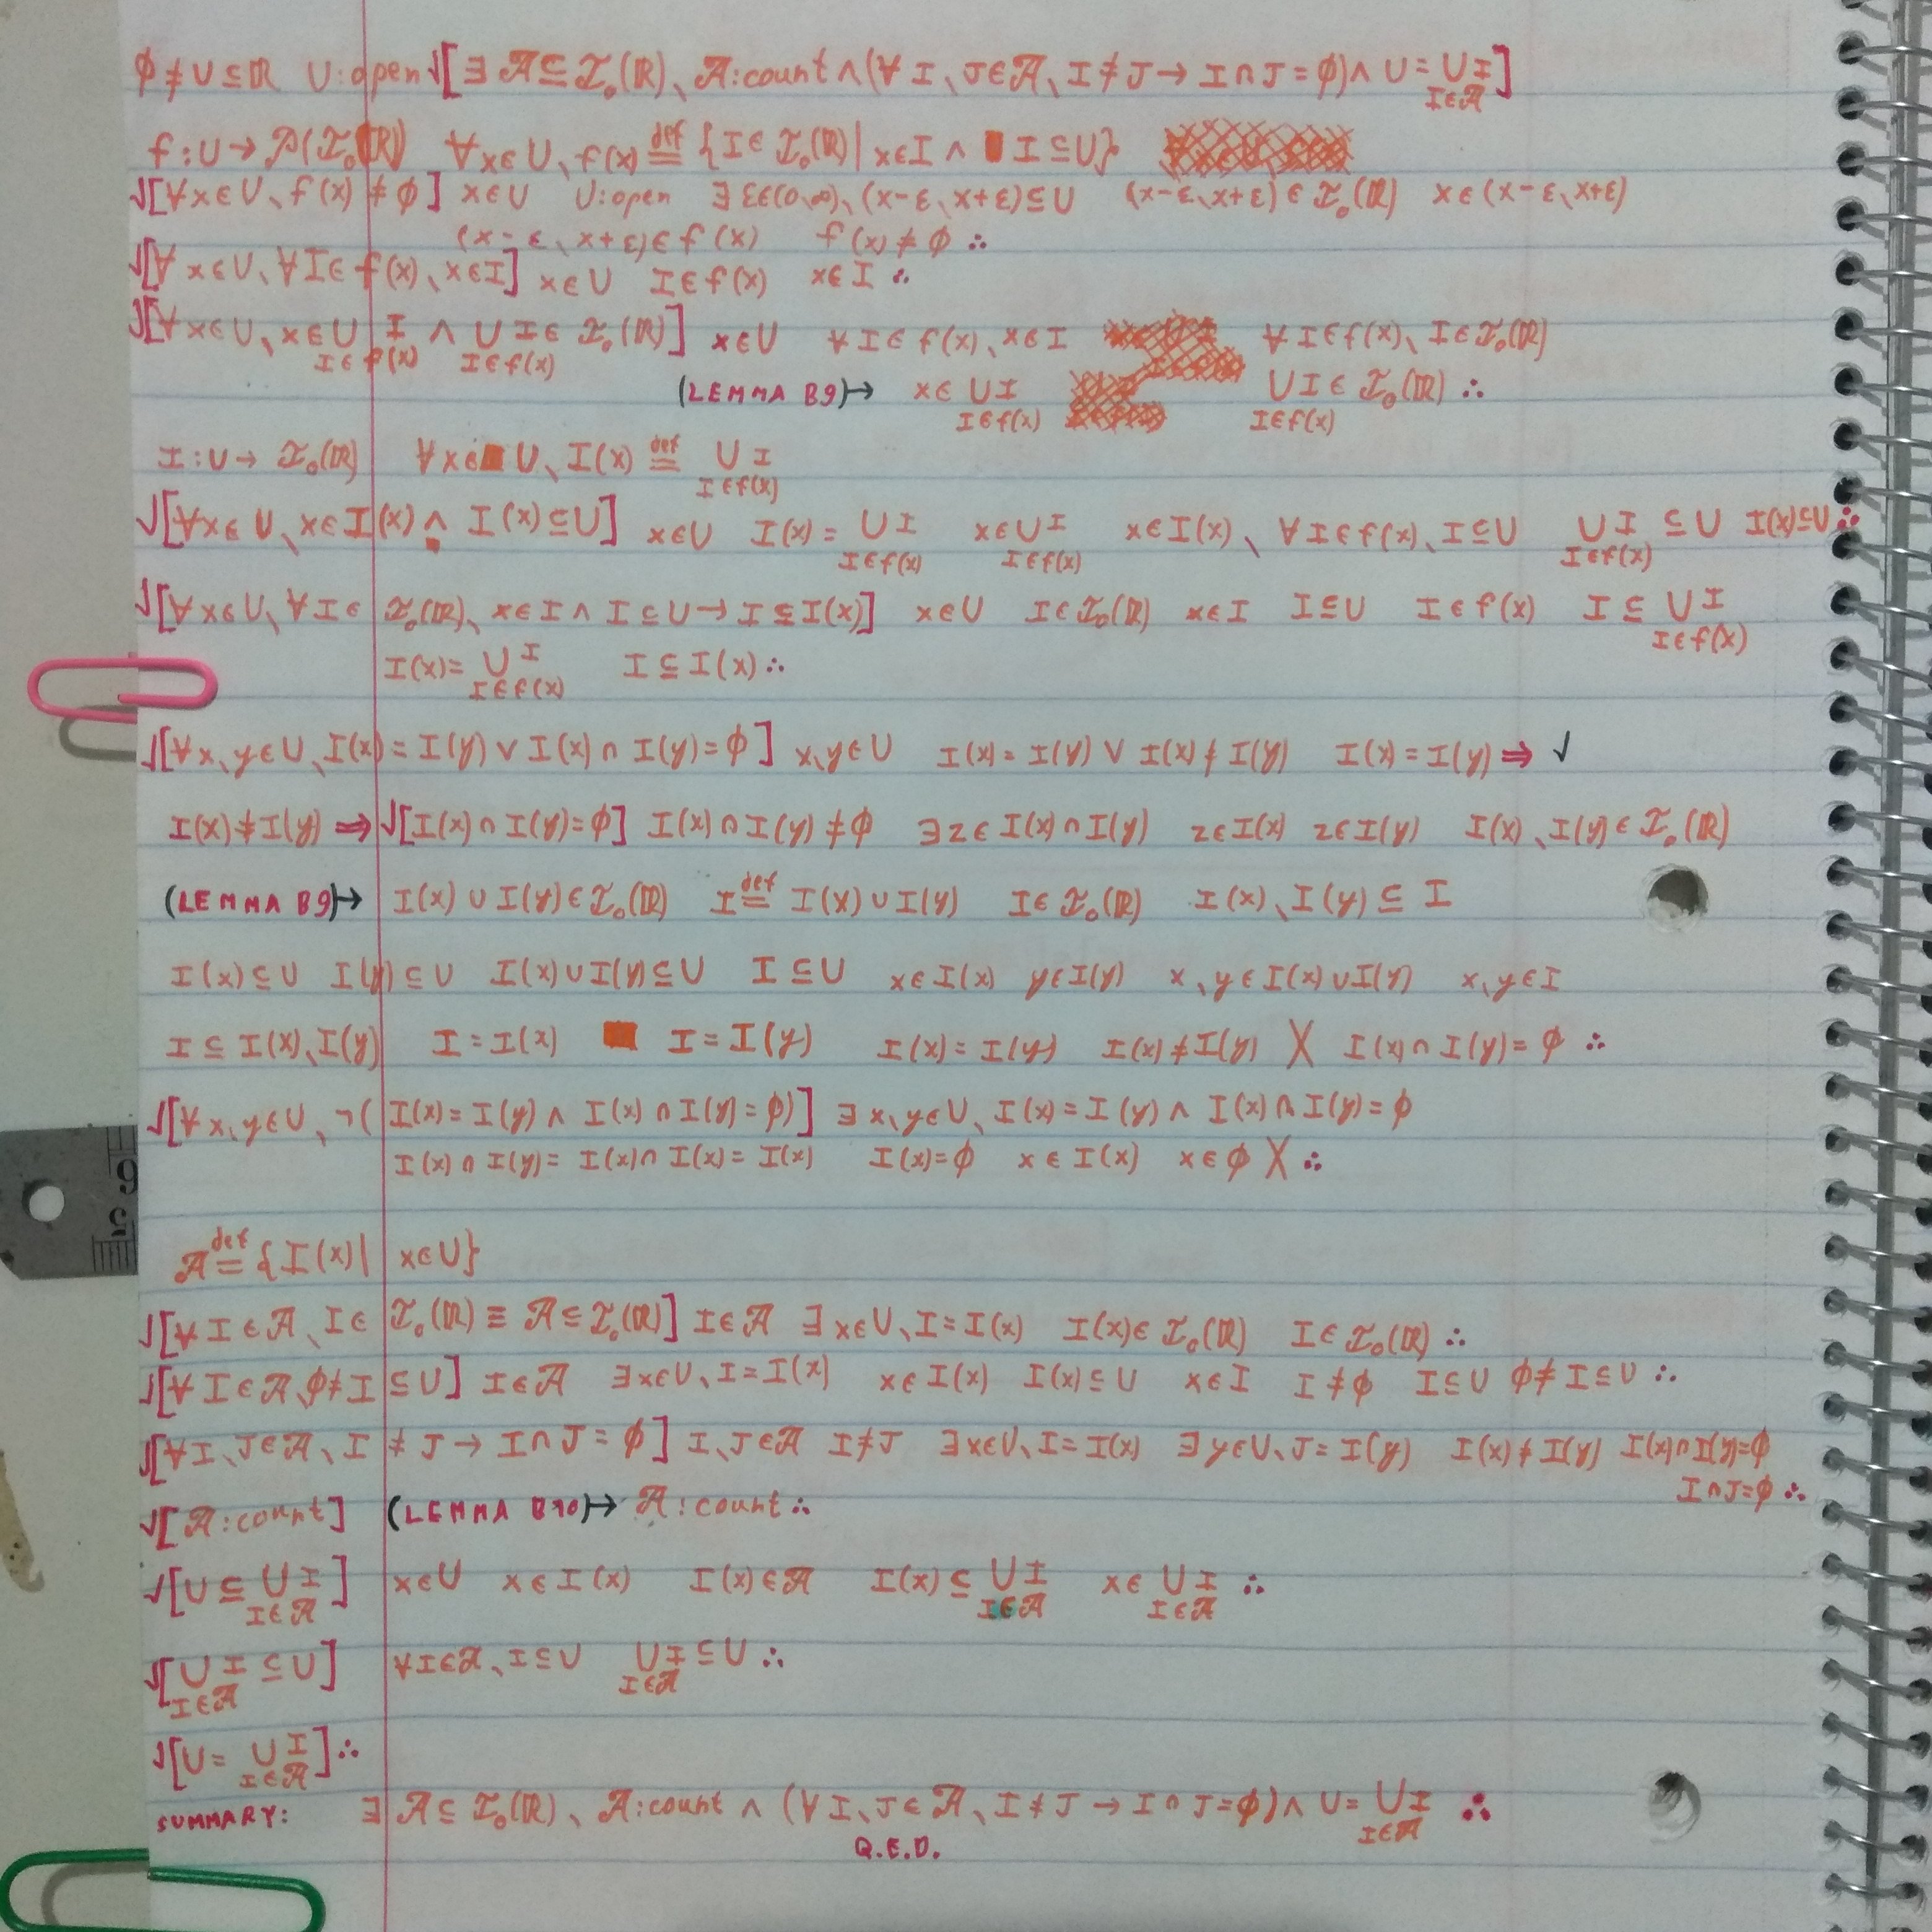 ∅≠U⊆ℝ U:open √[∃𝒜⊆ℐₒ(ℝ)、𝒜:count∧(∀I、J∈𝒜、I≠J→I∩J=∅)∧U=⋃I]
I∈𝒜
f:U→𝒫(ℐₒ(ℝ)) ∀x∈U、f(x)≝{I∈ℐₒ(ℝ)|x∈I∧I⊆U}
√[∀x∈U、f(x)≠∅] x∈U U:open ∃ε∈(0、∞)、(x-ε、x+ε)⊆U (x-ε、x+ε)∈ℐₒ(ℝ) x∈(x-ε、x+ε)
(x-ε、x+ε)∈f(x) f(x)≠∅∴
√[∀x∈U、∀I∈f(x)、x∈I] x∈U I∈f(x) x∈I∴
√[∀x∈U、x∈⋃I∧⋃I∈ℐₒ(ℝ)] x∈U ∀I∈f(x)、x∈I ∀I∈f(x)、I∈ℐₒ(ℝ)
I∈f(x) I∈f(x)
(LEMMA B9)↦ x∈⋃I ⋃I∈ℐₒ(ℝ)∴
I∈f(x) I∈f(x)
I:U→ℐₒ(ℝ) ∀x∈U、I(x)≝⋃I
I∈f(x)
√[∀x∈U、x∈I(x)∧I(x)⊆U] x∈U I(x)=⋃I x∈⋃I x∈I(x)、∀I∈f(x)、I⊆U ⋃I⊆U I(x)⊆U∴
I∈f(x) I∈f(x) I∈f(x)
√[∀x∈U、∀I∈ℐₒ(ℝ)、x∈I∧I⊆U→I⊆I(x)] x∈U I∈ℐₒ(ℝ) x∈I I⊆U I∈f(x) I⊆⋃I
I∈f(x)
I(x)=⋃I I⊆I(x)∴
I∈f(x)
√[∀x、y∈U、I(x)=I(y)∨I(x)∩I(y)=∅] x、y∈U I(x)=I(y)∨I(x)≠I(y) I(x)=I(y)⇒√
I(x)≠I(y)⇒√[I(x)∩I(y)=∅] I(x)∩I(y)≠∅ ∃z∈I(x)∩I(y) z∈I(x) z∈I(y) I(x)、I(y)∈ℐₒ(ℝ)
(LEMMA B9)↦ I(x)∪I(y)∈ℐₒ(ℝ) I≝I(x)∪I(y) I∈ℐₒ(ℝ) I(x)、I(y)⊆I
I(x)⊆U I(y)⊆U I(x)∪I(y)⊆U I⊆U x∈I(x) y∈I(y) x、y∈I(x)∪I(y) x、y∈I
I⊆I(x)、I(y) I=I(x) I=I(y) I(x)=I(y) I(x)≠I(y) X I(x)∩I(y)=∅∴
√[∀x、y∈U、¬(I(x)=I(y)∧I(x)∩I(y)=∅)] ∃x、y∈U、I(x)=I(y)∧I(x)∩I(y)=∅
I(x)∩I(y)=I(x)∩I(x)=I(x) I(x)=∅ x∈I(x) x∈∅ X∴
𝒜≝{I(x)|x∈U}
√[∀I∈𝒜、I∈ℐₒ(ℝ)≡𝒜⊆ℐₒ(ℝ)] I∈𝒜 ∃x∈U、I=I(x) I(x)∈ℐₒ(ℝ) I∈ℐₒ(ℝ)∴
√[∀I∈𝒜、∅≠I⊆U] I∈𝒜 ∃x∈U、I=I(x) x∈I(x) I(x)⊆U x∈I I≠∅ I⊆U ∅≠I⊆U∴
√[∀I、J∈𝒜、I≠J→I∩J=∅] I、J∈𝒜 I≠J ∃x∈U、I=I(x) ∃y∈U、J=I(y) I(x)≠I(y) I(x)∩I(y)=∅
I∩J=∅∴
√[𝒜:count] (LEMMA B10)↦ 𝒜:count∴
√[U⊆⋃I] x∈U x∈I(x) I(x)∈𝒜 I(x)⊆⋃I x∈⋃I∴
I∈𝒜 I∈𝒜 I∈𝒜
√[⋃I⊆U] ∀I∈𝒜、I⊆U ⋃I⊆U∴
I∈𝒜 I∈𝒜
√[U=⋃I]∴
I∈𝒜
SUMMARY: ∃𝒜⊆ℐₒ(ℝ)、𝒜:count∧(∀I、J∈𝒜、I≠J→I∩J=∅)∧U=⋃I∴
I∈𝒜
Q.E.D.